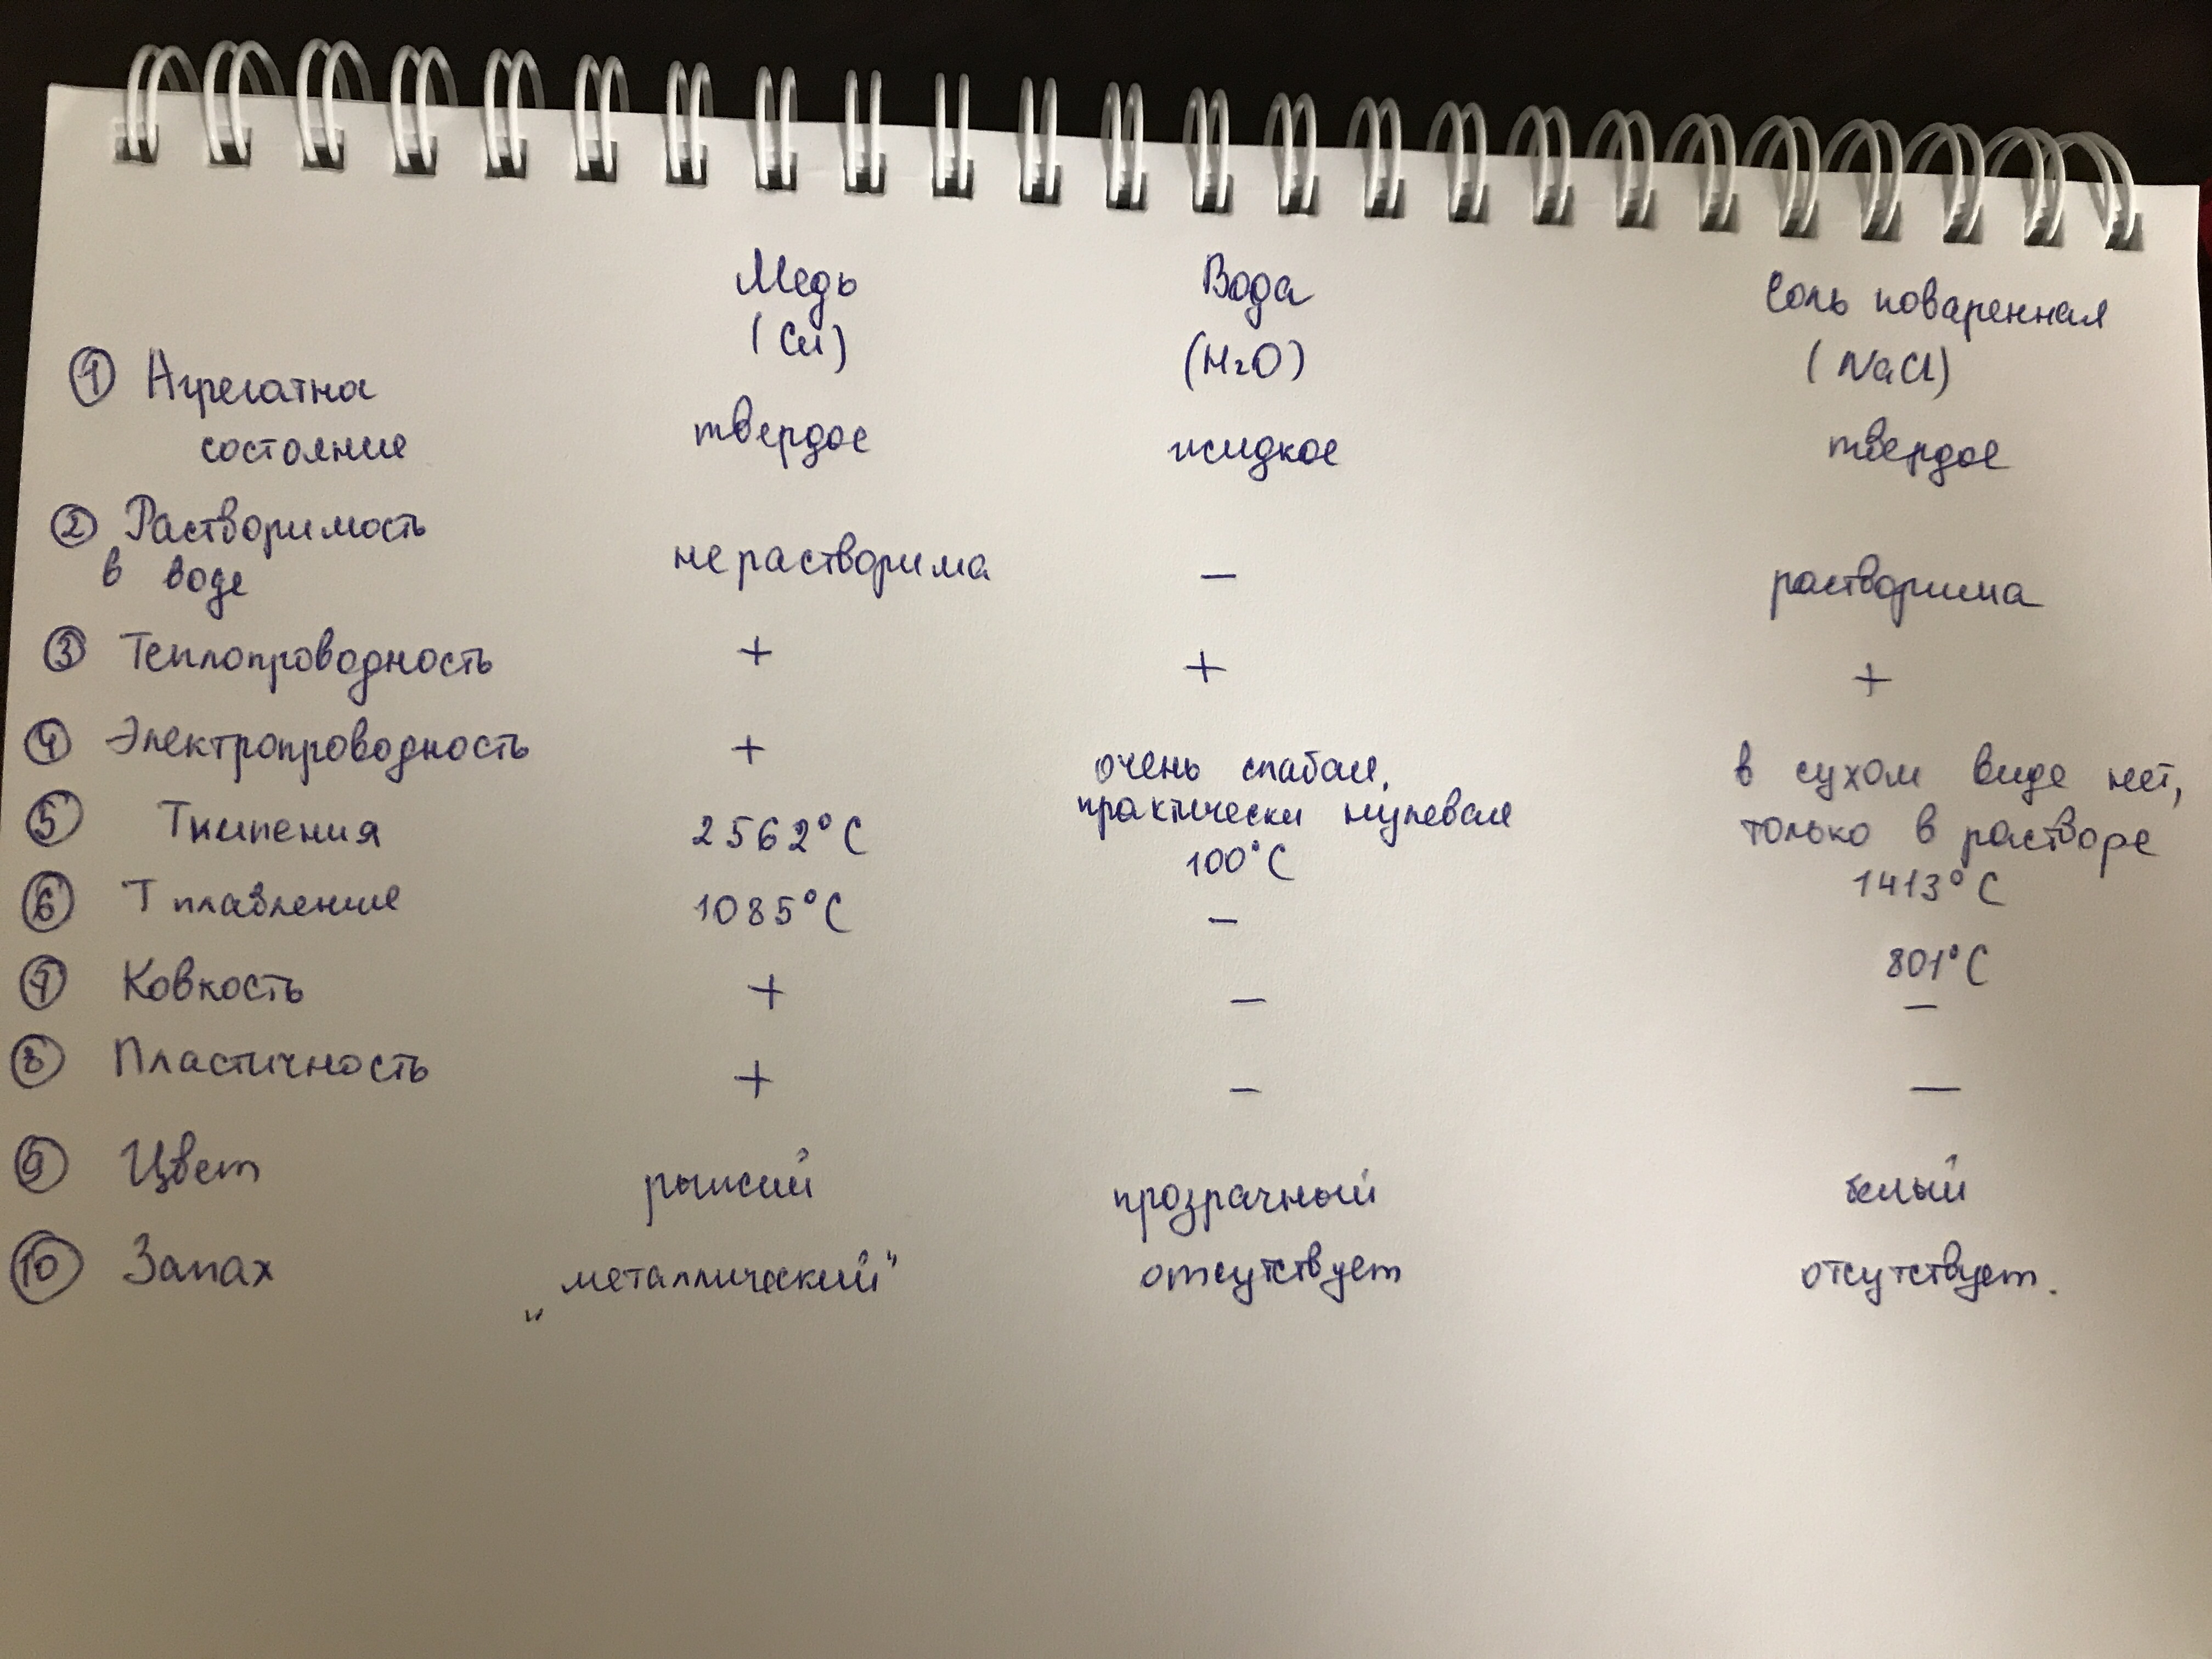 Медь Вода Соль поваренная
(Cu) (H₂O) (NaCl)
① Агрегатное
состояние твердое жидкое твердое
② Растворимость
в воде не растворима – растворима
③ Теплопроводность + + +
④ Электропроводность + очень слабая, в сухом виде нет,
практически нулевая только в растворе
⑤ Ткипения 2562°C 100°C 1413°C
⑥ Т плавление 1085°C – 801°C
⑦ Ковкость + – –
⑧ Пластичность + – –
⑨ Цвет рыжий прозрачный белый
⑩ Запах „металлический" отсутствует отсутствует.